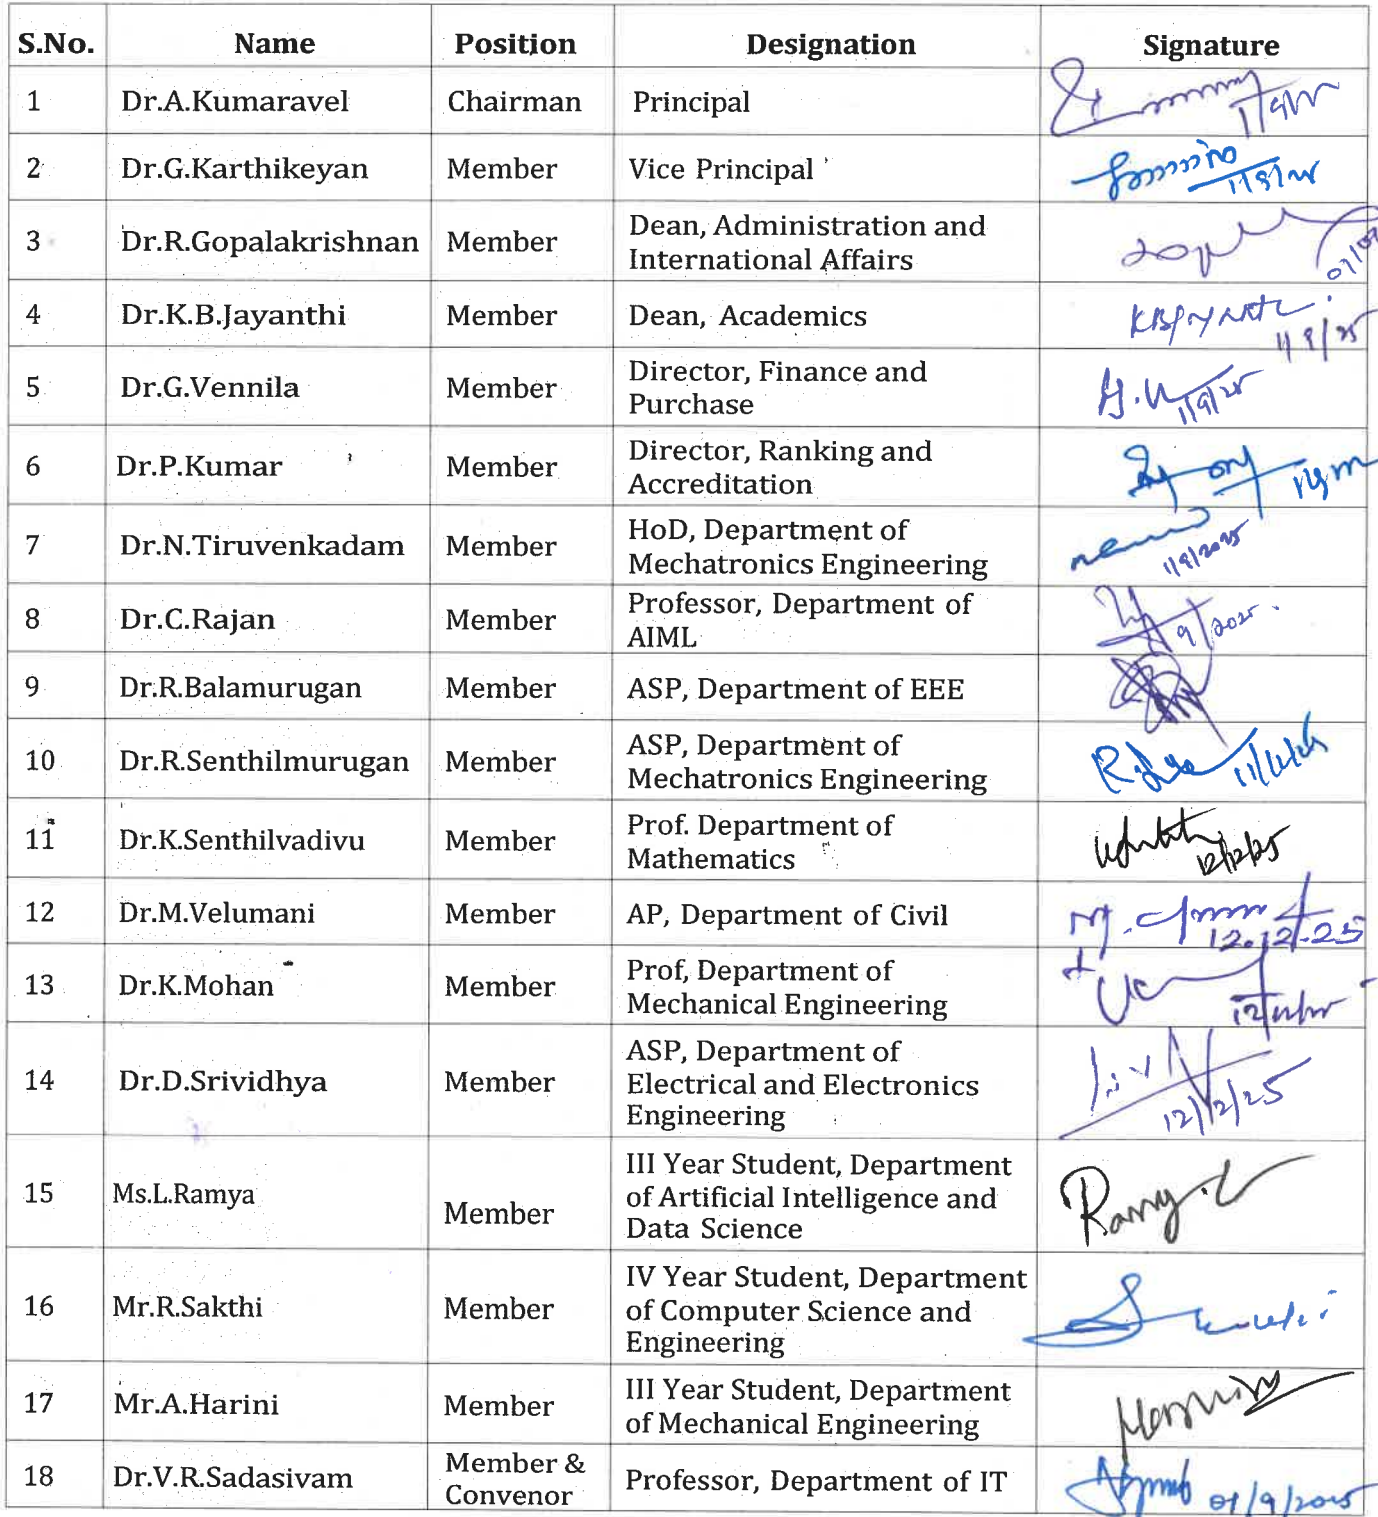 S.No. Name Position Designation Signature
1 Dr.A.Kumaravel Chairman Principal
2 Dr.G.Karthikeyan Member Vice Principal
3 Dr.R.Gopalakrishnan Member Dean, Administration and
International Affairs
4 Dr.K.B.Jayanthi Member Dean, Academics
1/9/25
5 Dr.G.Vennila Member Director, Finance and
Purchase
6 Dr.P.Kumar Member Director, Ranking and
Accreditation
7 Dr.N.Tiruvenkadam Member HoD, Department of
Mechatronics Engineering
1/9/2025
8 Dr.C.Rajan Member Professor, Department of
AIML
9 Dr.R.Balamurugan Member ASP, Department of EEE
10 Dr.R.Senthilmurugan Member ASP, Department of
Mechatronics Engineering
11 Dr.K.Senthilvadivu Member Prof. Department of
Mathematics
12/12/25
12 Dr.M.Velumani Member AP, Department of Civil
12.12.25
13 Dr.K.Mohan Member Prof, Department of
Mechanical Engineering
14 Dr.D.Srividhya Member ASP, Department of
Electrical and Electronics
Engineering
12/12/25
15 Ms.L.Ramya Member III Year Student, Department
of Artificial Intelligence and
Data Science
16 Mr.R.Sakthi Member IV Year Student, Department
of Computer Science and
Engineering
17 Mr.A.Harini Member III Year Student, Department
of Mechanical Engineering
18 Dr.V.R.Sadasivam Member &
Convenor Professor, Department of IT
01/9/2025